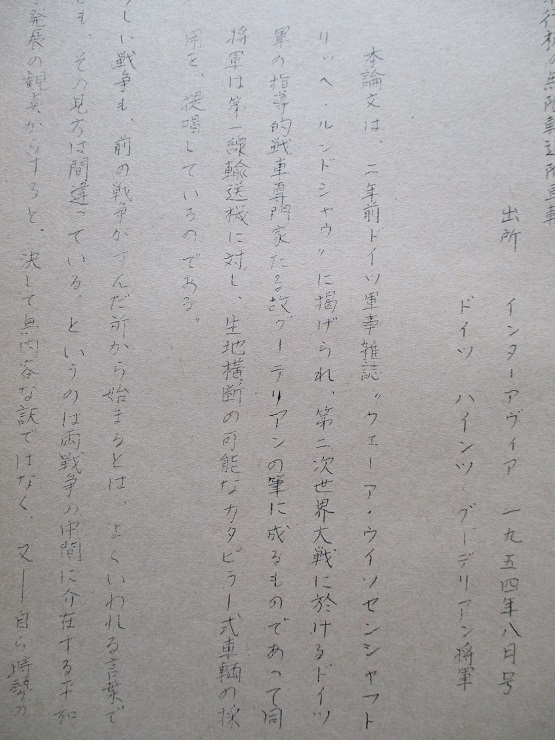 出所　インターアヴィア　一九五四年八月号
ドイツ　ハインツ　グーデリアン将軍
本論文は、二年前ドイツ軍事雑誌〃ウェーア・ウイツセンシャフト
リッヘ・ルンドシャウ〃に掲げられ、第二次世界大戦に於けるドイツ
軍の指導的戦車専門家たる故グーデリアンの筆に成るものであって同
将軍は第一線輸送機に対し、生地横断の可能なカタピラー式車輌の採
用を、提唱しているのである。
しい戦争も、前の戦争がすんだ所から始まるとは、よくいわれる言葉で
も、その見方は間違っている。というのは両戦争の中間に介在する平和
発展の観点からすると、決して無内容な訳ではなく、又一自ら時勢の